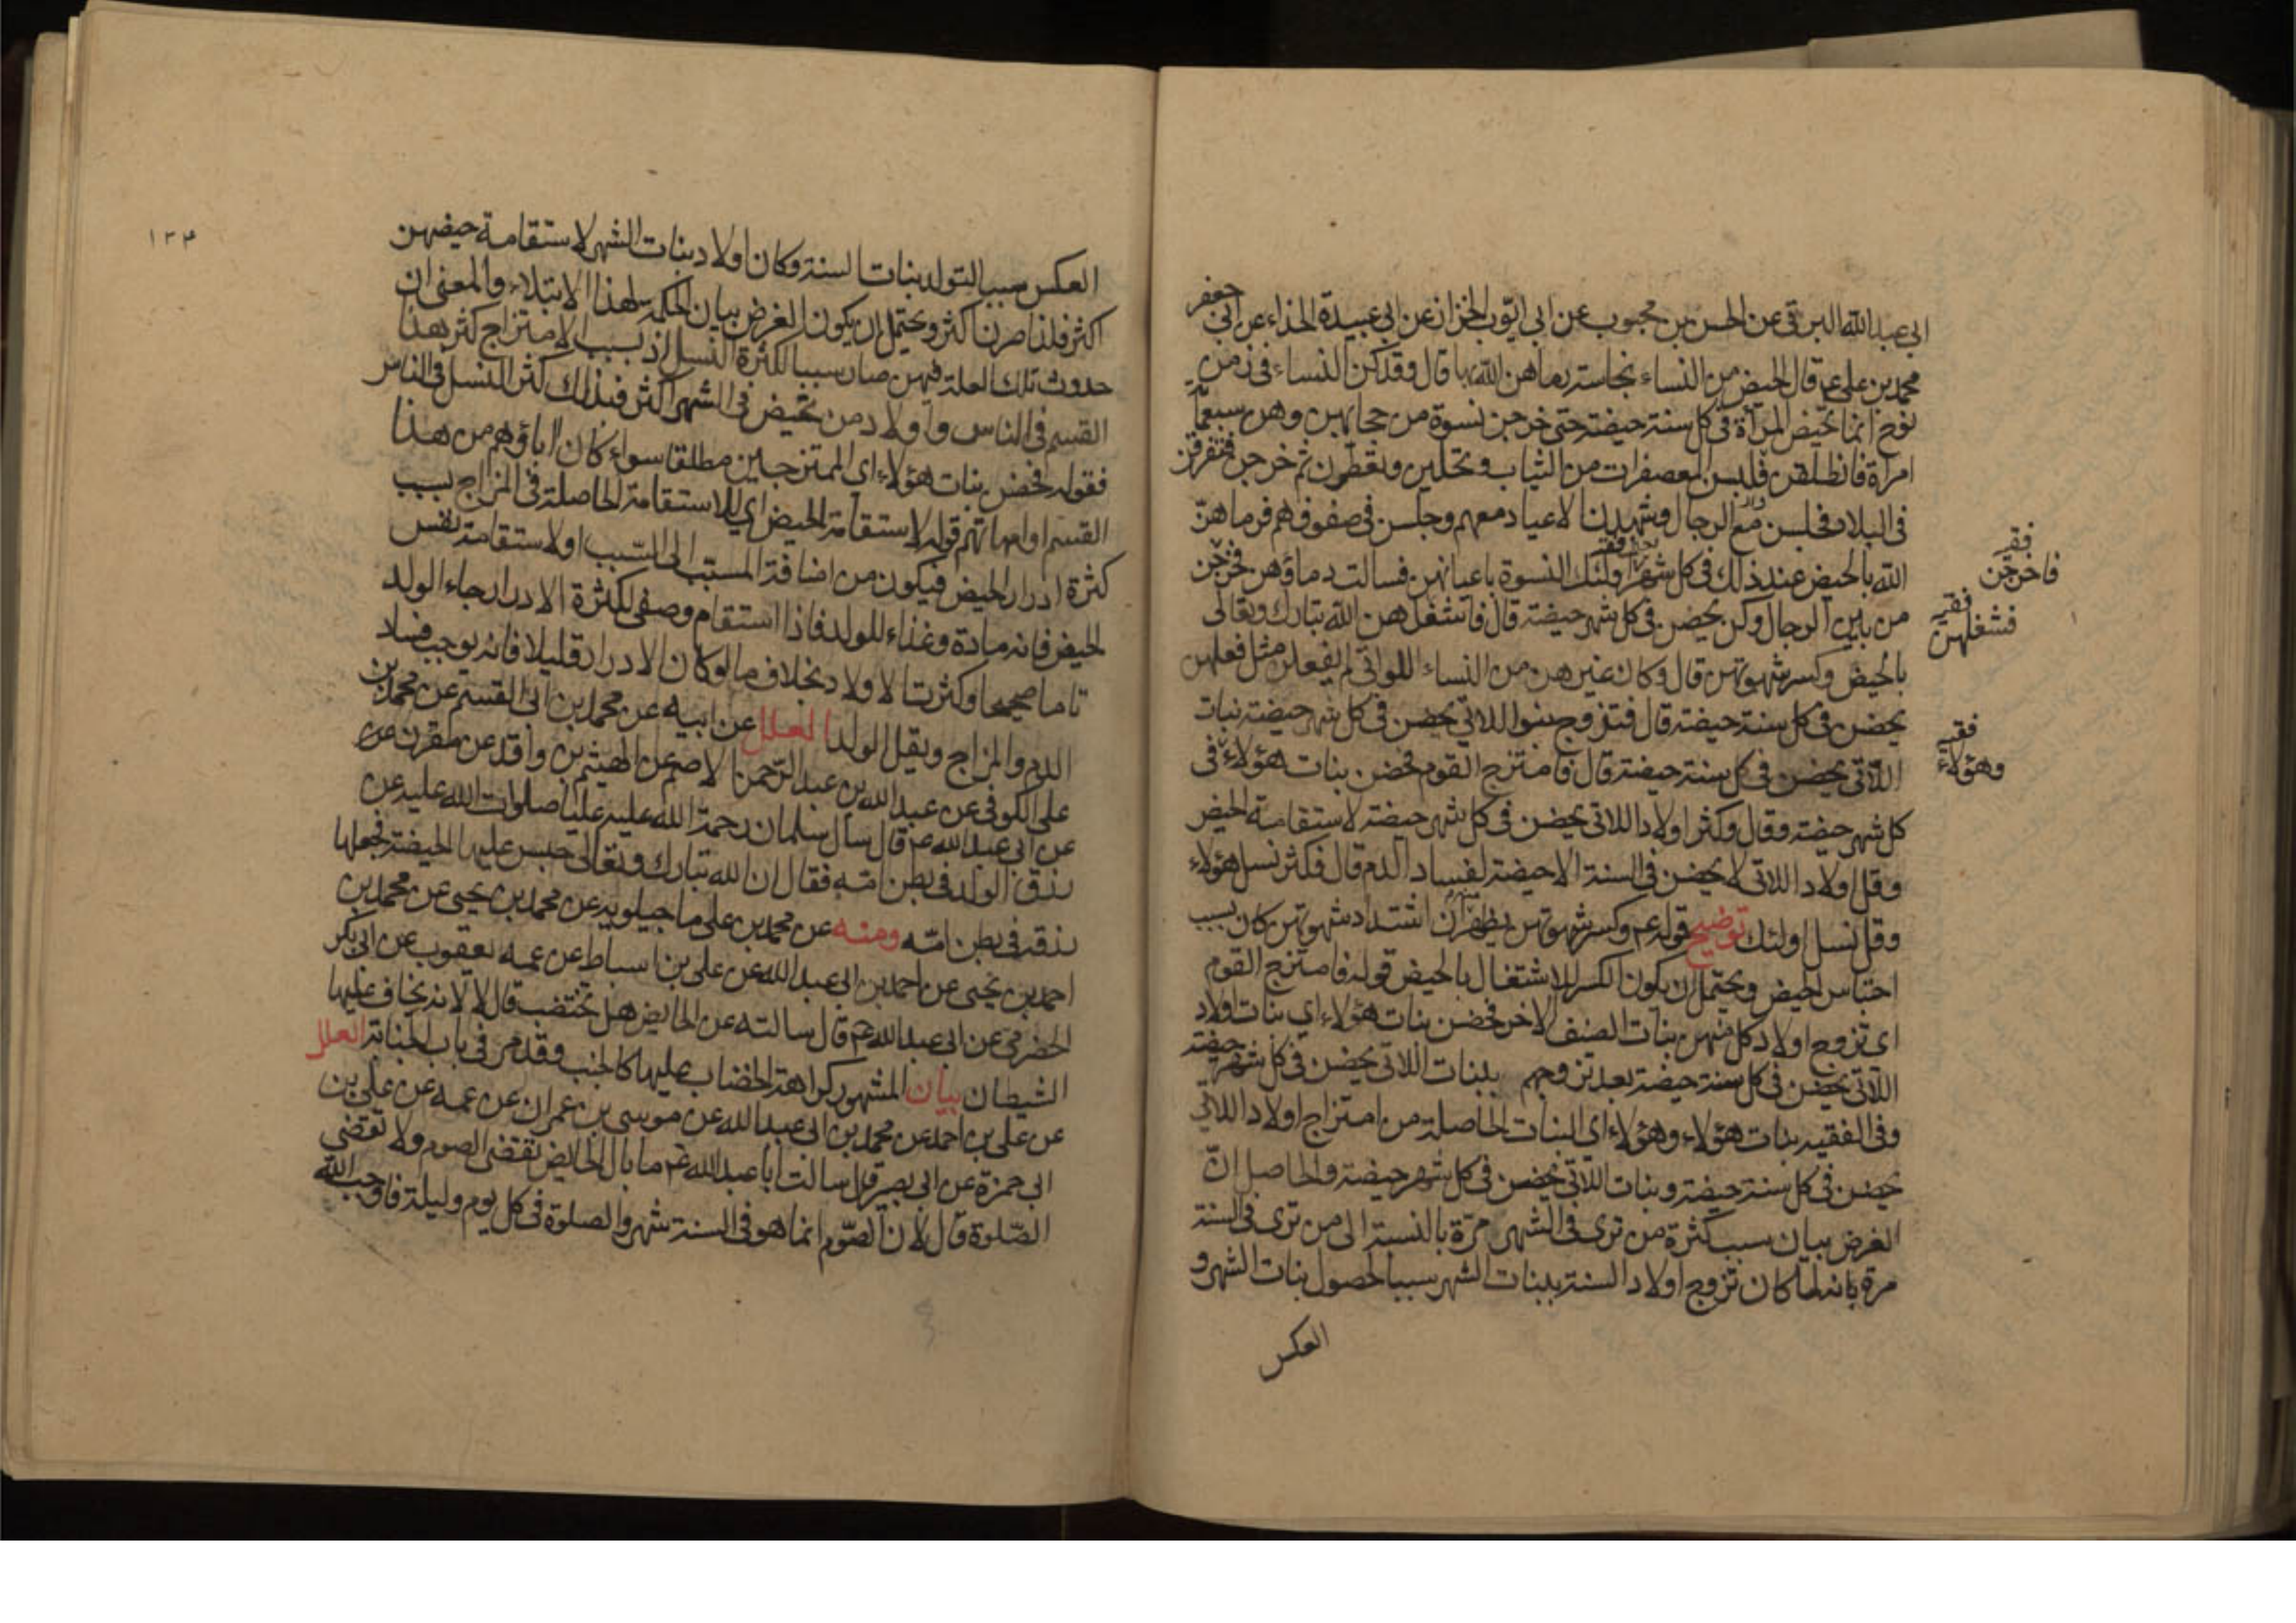 ابى عبد الله البرقى عن الحسن بن محبوب عن ابى ايّوب الخزاز عن ابى عبيدة الحذاء عن ابى جعفر
محمد بن على ع قال الحيض من النساء نجاسة رماهن الله بها قال وقد كن النساء فى زمن
نوح انما تحيض المرأة فى كل سنة حيضة حتى خرجن نسوة من حجابهن وهن سبعمأة
امرأة فانطلقن فلبسن المعصفرات من الثياب وتحلين وتعطرن ثم خرجن فتفرقن
فى البلاد فجلسن مع الرجال وشهدن الاعياد معهم وجلسن فى صفوفهم فرماهنّ
الله بالحيض عند ذلك فى كل شهر اولئك النسوة باعيانهن فسالت دماؤهن فخرجن
من بين الرجال وكن يحضن فى كل شهر حيضة قال فاشغلهن الله تبارك وتعالى
بالحيض وكسر شهوتهن قال وكان غيرهن من النساء اللواتى لم يفعلن مثل فعلهن
يحضن فى كل سنة حيضة قال فتزوج بنوا اللاتى يحضن فى كل شهر حيضة بنات
اللاتى يحضن فى كل سنة حيضة قال فامتزج القوم فحضن بنات هؤلاء فى
كل شهر حيضة وقال وكثر اولاد اللاتى يحضن فى كل شهر حيضة لاستقامة الحيض
وقل اولاد اللاتى لا يحضن فى السنة الا حيضة لفساد الدم قال فكثر نسل هؤلاء
وقل نسل اولئك توضيح قوله ع وكسر شهوتهن يظهر ان اشتداد شهوتهن كان بسبب
احتباس الحيض ويحتمل ان يكون الكسر للاشتغال بالحيض قوله فامتزج القوم
اى تزوج اولاد كل منهن بنات الصنف الاخر فحضن بنات هؤلاء اى بنات اولاد
اللاتى يحضن فى كل سنة حيضة بعد تزوجهم ببنات اللاتى يحضن فى كل شهر حيضة
وفى الفقيه بنات هؤلاء وهؤلاء اى البنات الحاصلة من امتزاج اولاد اللاتى
يحضن فى كل سنة حيضة وبنات اللاتى يحضن فى كل شهر حيضة والحاصل انّ
الغرض بيان سبب كثرة من ترى فى الشهر مرّة بالنسبة الى من ترى فى السنة
مرة بانه لما كان تزوج اولاد السنة ببنات الشهر سببا لحصول بنات الشهر و
العكس
فقيه
فاخرجن
فقيه
فشغلهن
فقيه
وهؤلاء
١٣٤
العكس سببا لتولد بنات السنة وكان اولاد بنات الشهر لاستقامة حيضهن
اكثر فلذا صرن اكثر ويحتمل ان يكون الغرض بيان الحكمة لهذا الابتلاء والمعنى ان
حدوث تلك العلة فيهن صار سببا لكثرة النسل اذ بسبب الامتزاج كثر هذا
القسم فى الناس واولاد من تحيض فى الشهر اكثر فبذلك كثر النسل فى الناس
فقوله فحضن بنات هؤلاء اى الممتزجين مطلقا سواء كان اباؤهم من هذا
القسم او امهاتهم قوله لاستقامة الحيض اى للاستقامة الحاصلة فى المزاج بسبب
كثرة ادرار الحيض فيكون من اضافة المسبب الى السّبب او لاستقامة نفس
الحيض فانه مادة وغذاء للولد فاذا استقام وصفى لكثرة الادرار جاء الولد
تاما صحيحا وكثرت الاولاد بخلاف ما لو كان الادرار قليلا فانه يوجب فساد
الدم والمزاج ويقل الولد العلل عن ابيه عن محمد بن ابى القسم عن محمد بن
على الكوفى عن عبد الله بن عبد الرّحمن الاصم عن الهيثم بن واقد عن مقرن عن
عن ابى عبد الله ع قال سأل سلمان رحمة الله عليه عليا صلوات الله عليه عن
رزق الولد فى بطن امّه فقال ان الله تبارك وتعالى حبس عليها الحيضة فجعلها
رزقه فى بطن امّه ومنه عن محمد بن على ماجيلويه عن محمد بن يحيى عن محمد بن
احمد بن يحيى عن احمد بن ابى عبد الله عن على بن اسباط عن عمه يعقوب عن ابى بكر
الحضرمى عن ابى عبد الله ع قال سالته عن الحايض هل تختضب قال لا لانه يخاف عليها
الشيطان بيان المشهور كراهة الخضاب عليها كالجنب وقد مر فى باب الجنابة العلل
عن على بن احمد عن محمد بن ابى عبد الله عن موسى بن عمران عن عمه عن على بن
ابى حمزة عن ابى بصير قال سالت ابا عبد الله ع ما بال الحايض تقضى الصوم ولا تقضى
الصّلوة قال لان الصّوم انما هو فى السنة شهر والصلوة فى كل يوم وليلة فاوجب الله